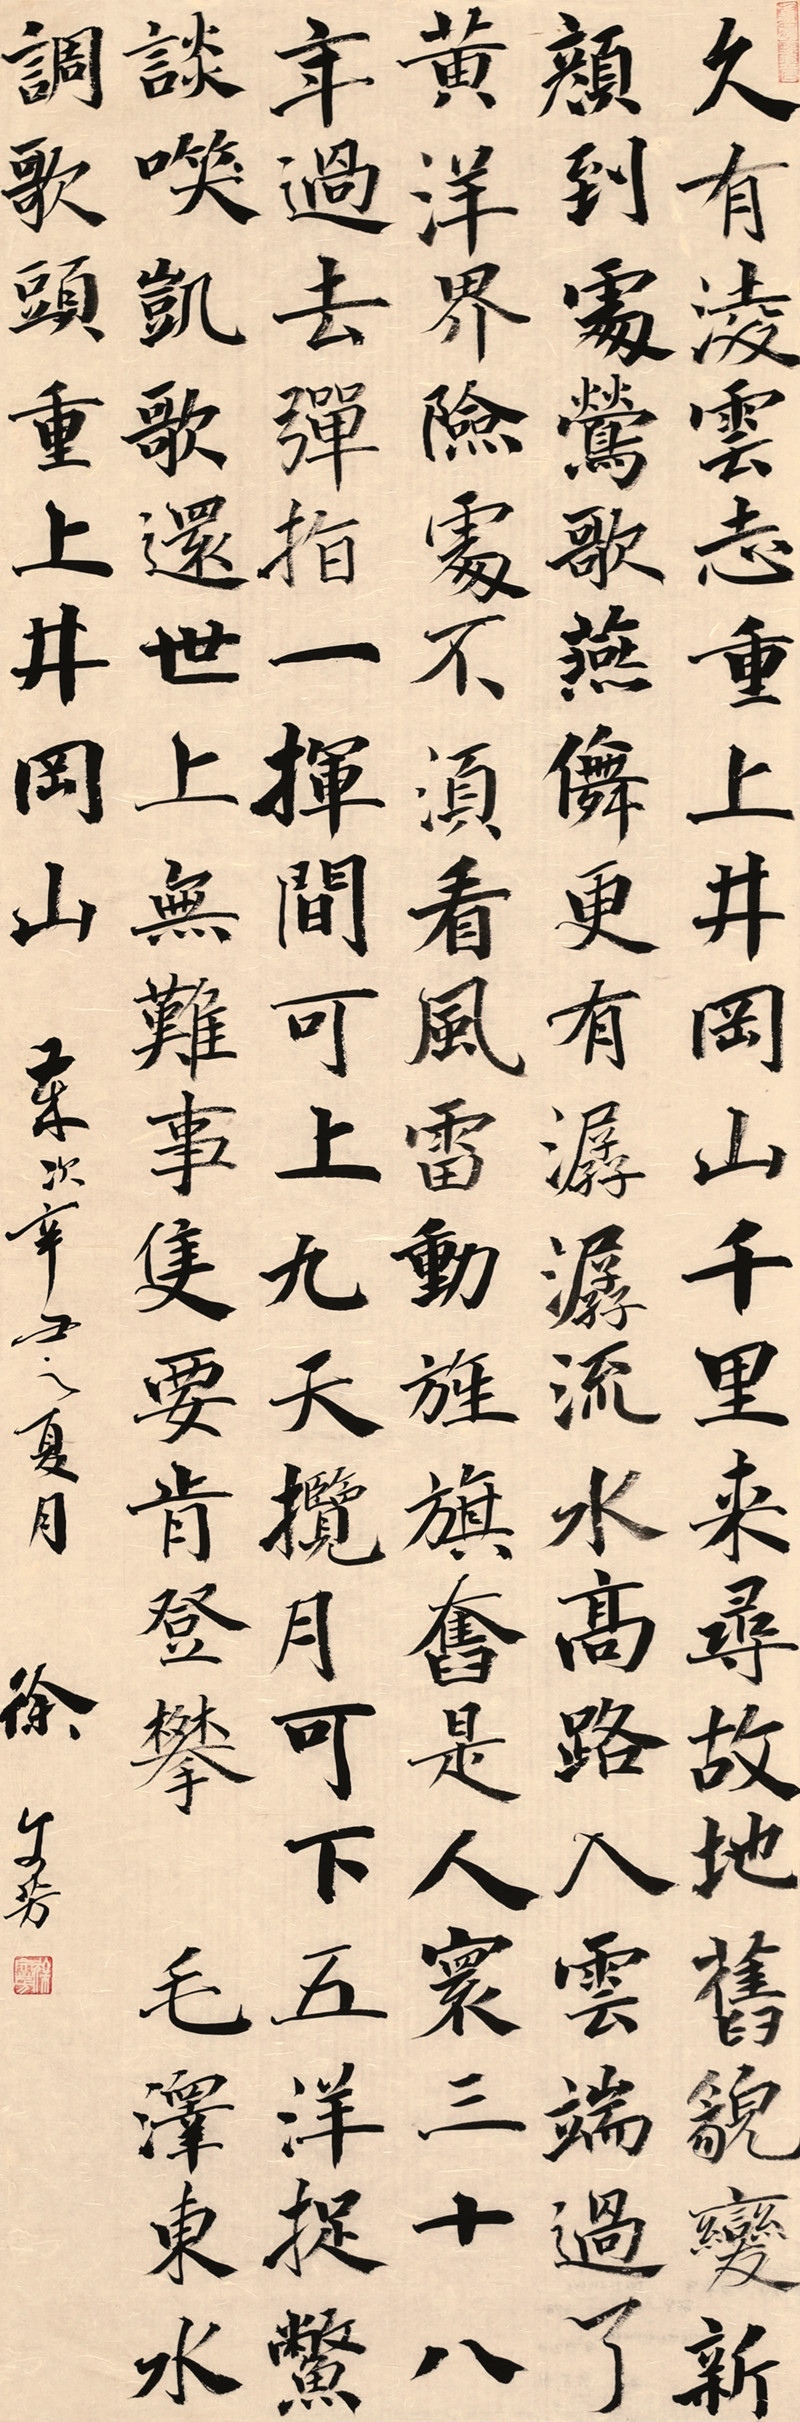 久有淩雲志重上井岡山千里来尋故地舊貌變新
顔到處鶯歌燕儛更有潺潺流水高路入雲端過了
黄洋界險處不湏看風雷動旌旗奮是人寰三十八
年過去彈指一揮間可上九天攬月可下五洋捉鱉
談噗凱歌還世上無難事隻要肯登攀 毛澤東水
調歌頭重上井岡山 歲次辛丑之夏月 徐文芳